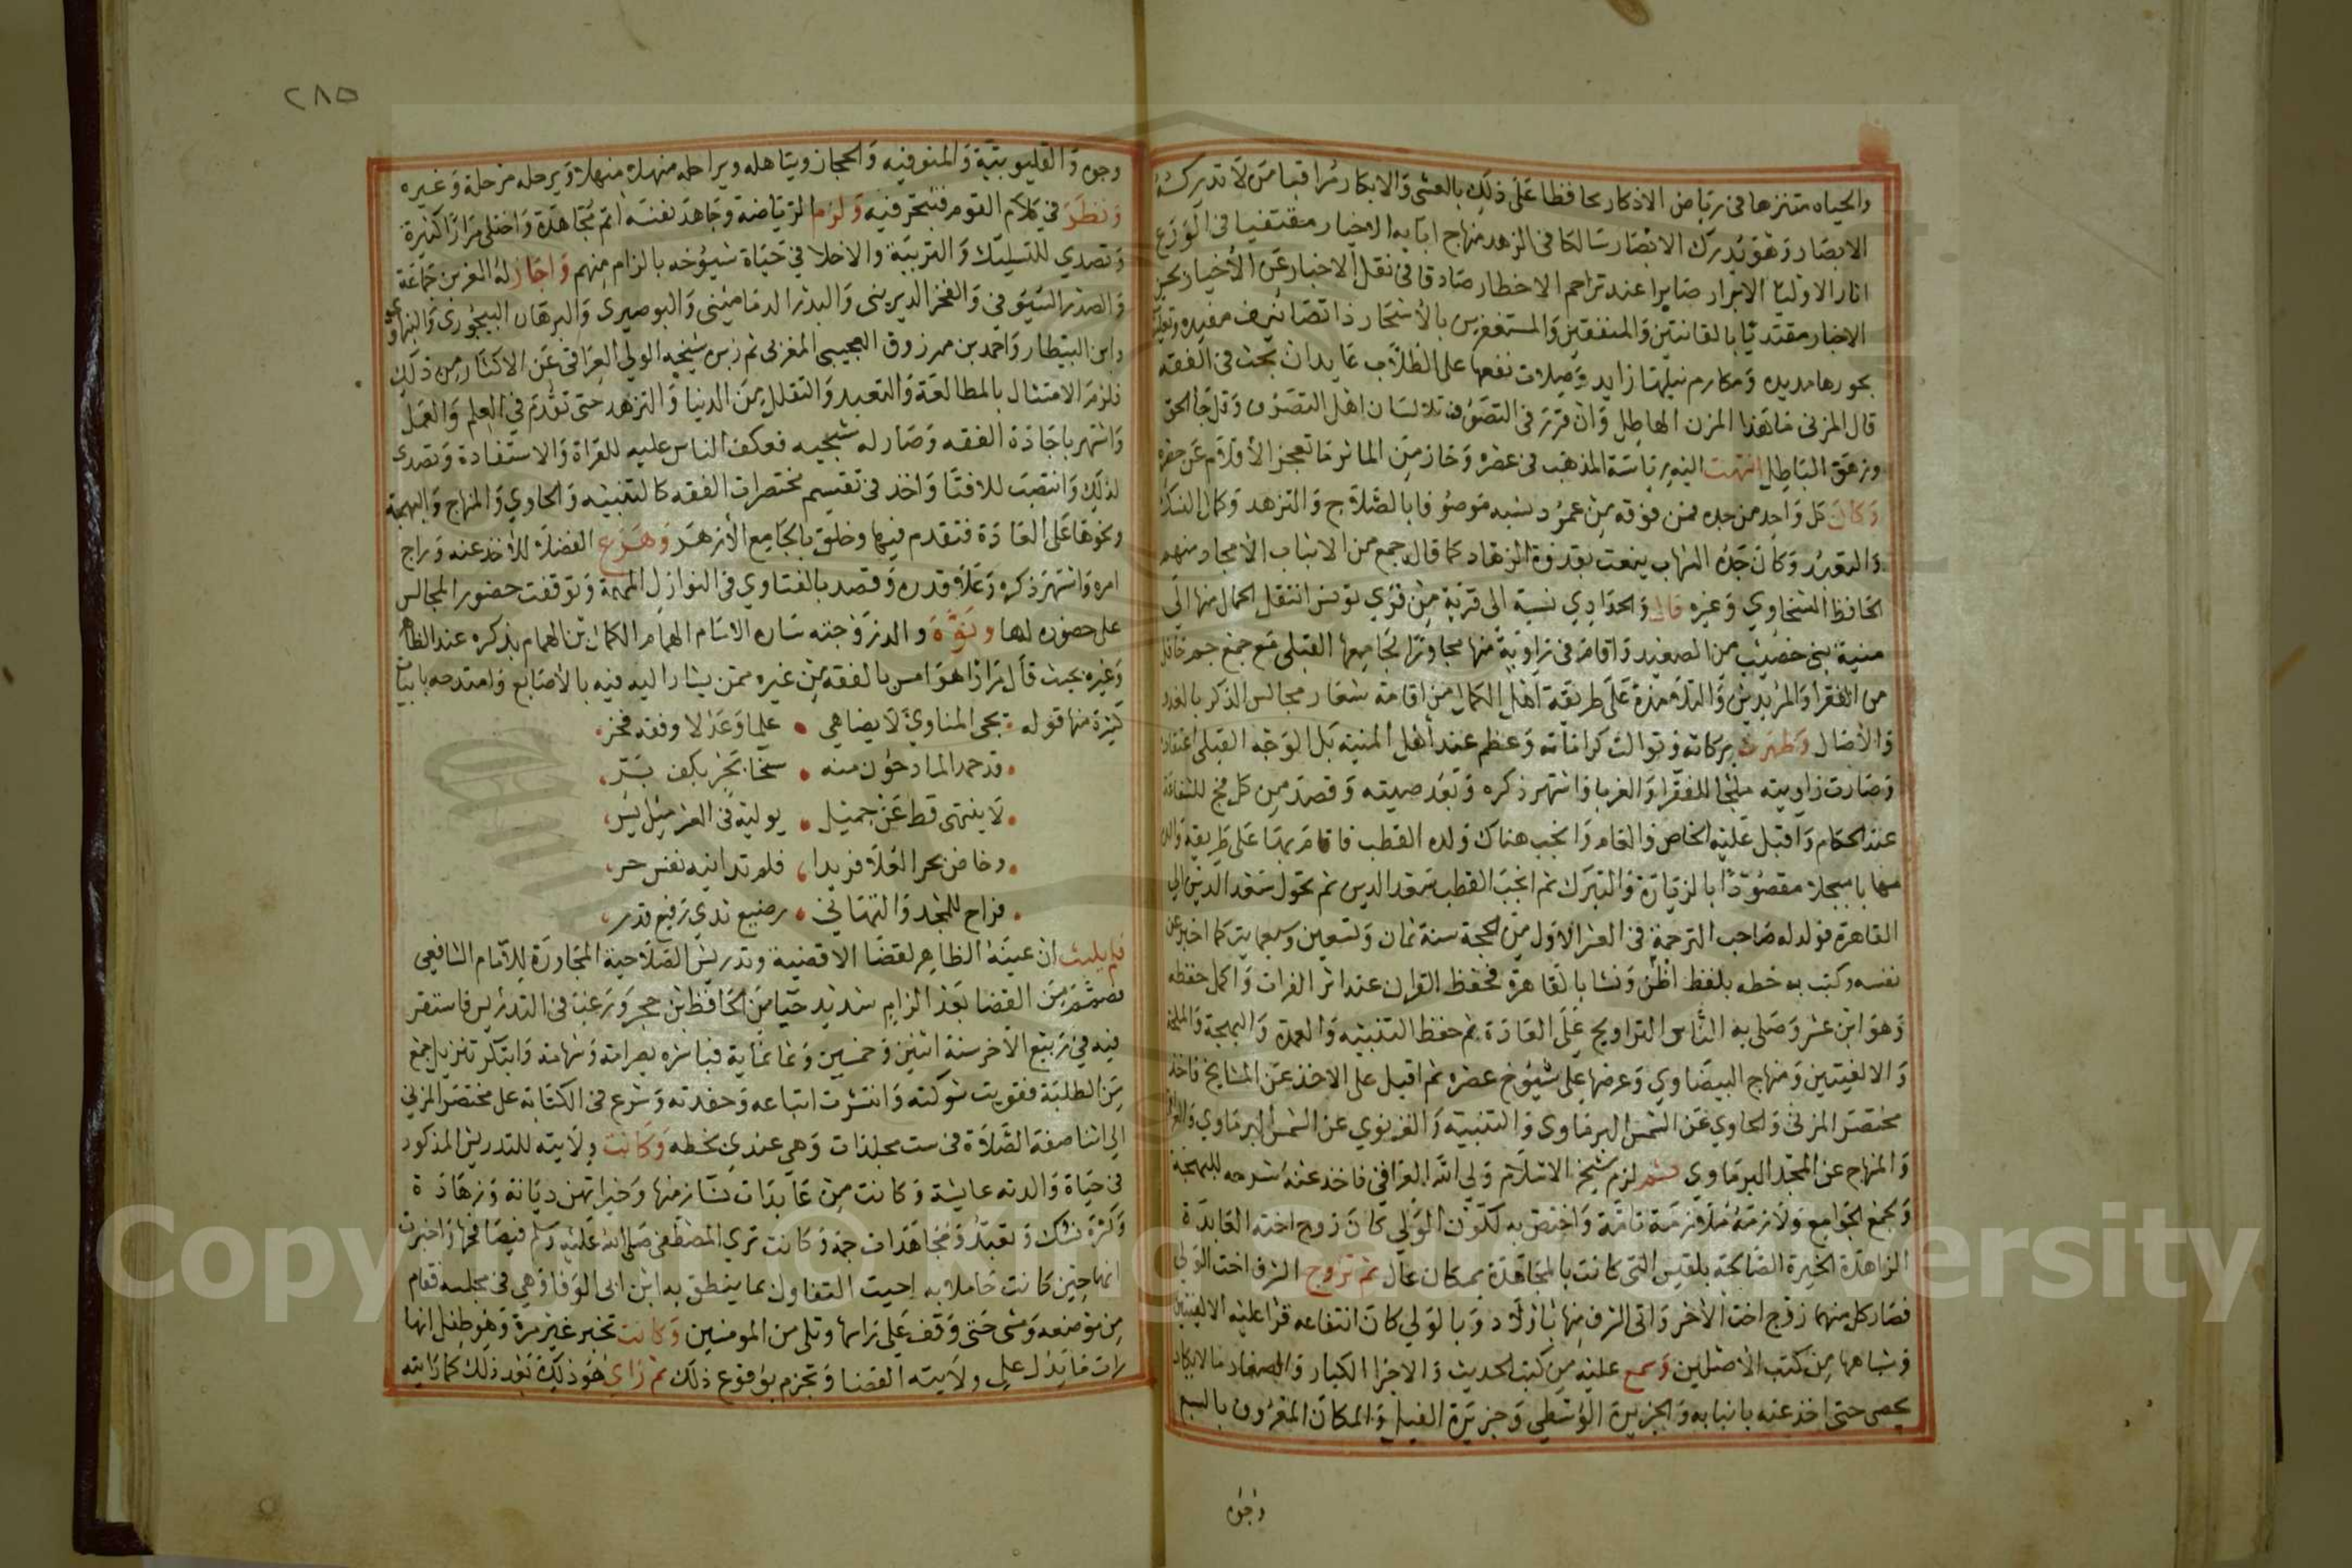 والحياه متنزها فى رياض الاذكار محافظا على ذلك بالعشى والابكار مراقبا من لا تدركه
الابصار وهو يدرك الابصار سالكا فى الزهد منهاج ابايه الاخيار مقتفيا فى الورع
اثار الاوليا الابرار صابرا عند تزاحم الاخطار صادقا فى نقل الاخبار عن الأخيار
الاخبار مقتديا بالقانتين والمنفقين والمستغفرين بالأسحار ذا تصانيف مفيده
بحورها مديده ومكارم نيلها زايد وصلات نفعها على الطلاب عايد ان بحث فى الفقه
قال المزنى ما هذا المزن الهاطل وان قرر فى التصوف تلا لسان اهل التصوف وقل جا الحق
وزهق الباطل انتهت اليه رياسة المذهب فى عصره وحاز من الماثر ما تعجز الأقلام عن حصره
وكان كل واحد من جده فمن فوقه من عمود نسبه موصوفا بالصلاح والتزهد وكمال
والتعبد وكان جده الشهاب ينعت بقدوة الزهاد كما قال جمع من الانباب الأمجاد منهم
الحافظ السخاوي وغيره قال والحدادي نسبة الى قرية من قري تونس انتقل الحمال منها الى
منية بنى خصيب من الصعيد واقام فى زاوية منها مجاورا لجامعها القبلى مع جمع جم
من الفقرا والمريدين والتلامذة على طريقة اهل الكمال من اقامة شعار مجالس الذكر بالغدو
والأصال وظهرت بركاته وتوالت كراماته وعظم عند أهل المنية بل الوجه القبلى
وصارت زاويته ملجا للفقرا والغربا واشتهر ذكره وبعد صيته وقصد من كل فج للشفاعة
عند الحكام واقبل عليه الخاص والعام وانجب هناك ولده القطب فاقام بها على طريقة والده
مهابا مبجلا مقصودا بالزيارة والتبرك ثم انجب القطب سعد الدين ثم تحول سعد الدين الي
القاهرة فولد له صاحب الترجمة فى العشر الاول من الحجة سنة ثمان وتسعين وسبعماية كما اخبر عن
نفسه وكتب به خطه بلفظ اظن ونشا بالقاهرة فحفظ القران عند اثر الفرات واكمل حفظه
وهو ابن عشر وصلى به الناس التراويح على العادة ثم حفظ التنبيه والعمدة والبهجة والملحة
والالفيتين ومنهاج البيضاوي وعرضها على شيوخ عصره ثم اقبل على الاخذ عن المشايخ فاخذ
مختصر المزنى والحاوي عن الشمس البرماوى والتنبيه والقزنوي عن الشمس البرماوي
والمنهاج عن المجد البرماوي ثم لزم شيخ الاسلام ولي الله العراقى فاخذ عنه شرحه للبهجة
وبجمع الجوامع ولازمه ملازمة تامة واختص به لكون الولى كان زوج اخته العابدة
الزاهدة الخيرة الصالحة بلقيس التى كانت بالمجاهدة بمكان عال ثم تزوج الشرف اخت الولى
فصار كل منهما زوج اخت الأخر واتى الشرف منها باولاد وبالولي كان انتفاعه قرا عليه الالفيتين
وشباهها من كتب الأصلين وسمع عليه من كتب الحديث والاجزا الكبار والصغار ما لا يكاد
يحصى حتى اخذ عنه بانبابه والجزيرة الوسطي وجزيرة الفيل والمكان المعروف بالسبع
وجوه
٢٨٥
وجوه والقليوبية والمنوفيه والحجاز ويتاهله ويراحله منهلا منهلا ويرحله مرحلة وغيره
ونظر في كلام القوم فتبحر فيه ولزم الرياضة وجاهد نفسه اتم مجاهدة واختلى مرارا كثيرة
وتصدي للتسليك والتربية والاخلا في حياة شيوخه بالزام منهم واجاز له العز بن جماعة
والصدر السيوفي والفخر الديرينى والبدر الدمامينى والبوصيرى والبرهان البيجورى
وابن البيطار واحمد بن مرزوق العجيبى المغربى ثم زبره شيخه الولي العراقى عن الاكثار من ذلك
فلزم الامتثال بالمطالعة والتعبد والتقلل من الدنيا والتزهد حتى تقدم في العلم والعمل
واشتهر باجادة الفقه وصار له شجيه فعكف الناس عليه للقراة والاستفادة وتصدى
لذلك وانتصب للافتا واخذ فى تقسيم مختصرات الفقه كالتنبيه والحاوي والمنهاج والبهجة
ونحوها على العادة فتقدم فيها وحلق بالجامع الأزهر وهرع الفضلا للأخذ عنه وراج
امره واشتهر ذكره وعلا قدره وقصد بالفتاوي فى النوازل المهمة وتوقفت حضور المجالس
على حضوره لها ونوه والد زوجته ساره الامام الهمام الكمال بن الهمام بذكره عند الظاهر
وغيره بحيث قال مرارا هو امس بالفقه من غيره ممن يشار اليه فيه بالأصابع وامتدحه بابيات
كثيرة منها قوله يحى المناوي لا يضاهي • علما وعدلا وفقد فخر
قد حمد المادحون منه • سحا تجز بكف بتر
لا ينتهى قط عن جميل • يوليه فى العز مثل يسر
وخاض بحر العلا فريدا • فلم تدانيه نفس حر
فراح للمجد والتهانى • رضيع ندي رفيع قدر
فلم يلبث ان عينه الظاهر لقضا الاقضية وتدريس الصلاحية المجاورة للأمام الشافعى
فصمم من القضا بعد الزام شديد حيا من الحافظ بن حجر ورغب فى التدريس فاستقر
فيه في ربيع الاخر سنة اثنين وخمسين وثمانماية فباشره بصرامة وشهامة وابتكر تنزيل جمع
من الطلبة فقويت شوكته وانتشرت اتباعه وحفدته وشرع فى الكتابة على مختصر المزنى
الى اثنا صفة الصلاة فى ست مجلدات وهى عندي بخطه وكانت ولايته للتدريس المذكور
فى حياة والدته عايشة وكانت من عابدات نسا زمنها وخيراتهن ديانة وزهادة
وكثرة نسك وتعبد ومجاهدات جمة وكانت تري المصطفى صلى الله عليه وسلم فيصافحها واخبرت
انها حين كانت حاملا به احبت التفاول بما ينطق به ابن ابى الوفا وهي فى مجلسه فقام
من موضعه ومشى حتى وقف على راسها وتلى من المومنين وكانت تخبر غير مرة وهو طفل انها
رات ما يدل على ولايته القضا وتجزم بوقوع ذلك ثم راي هو ذلك بعد ذلك كما رايته
Copyright © King Saud University